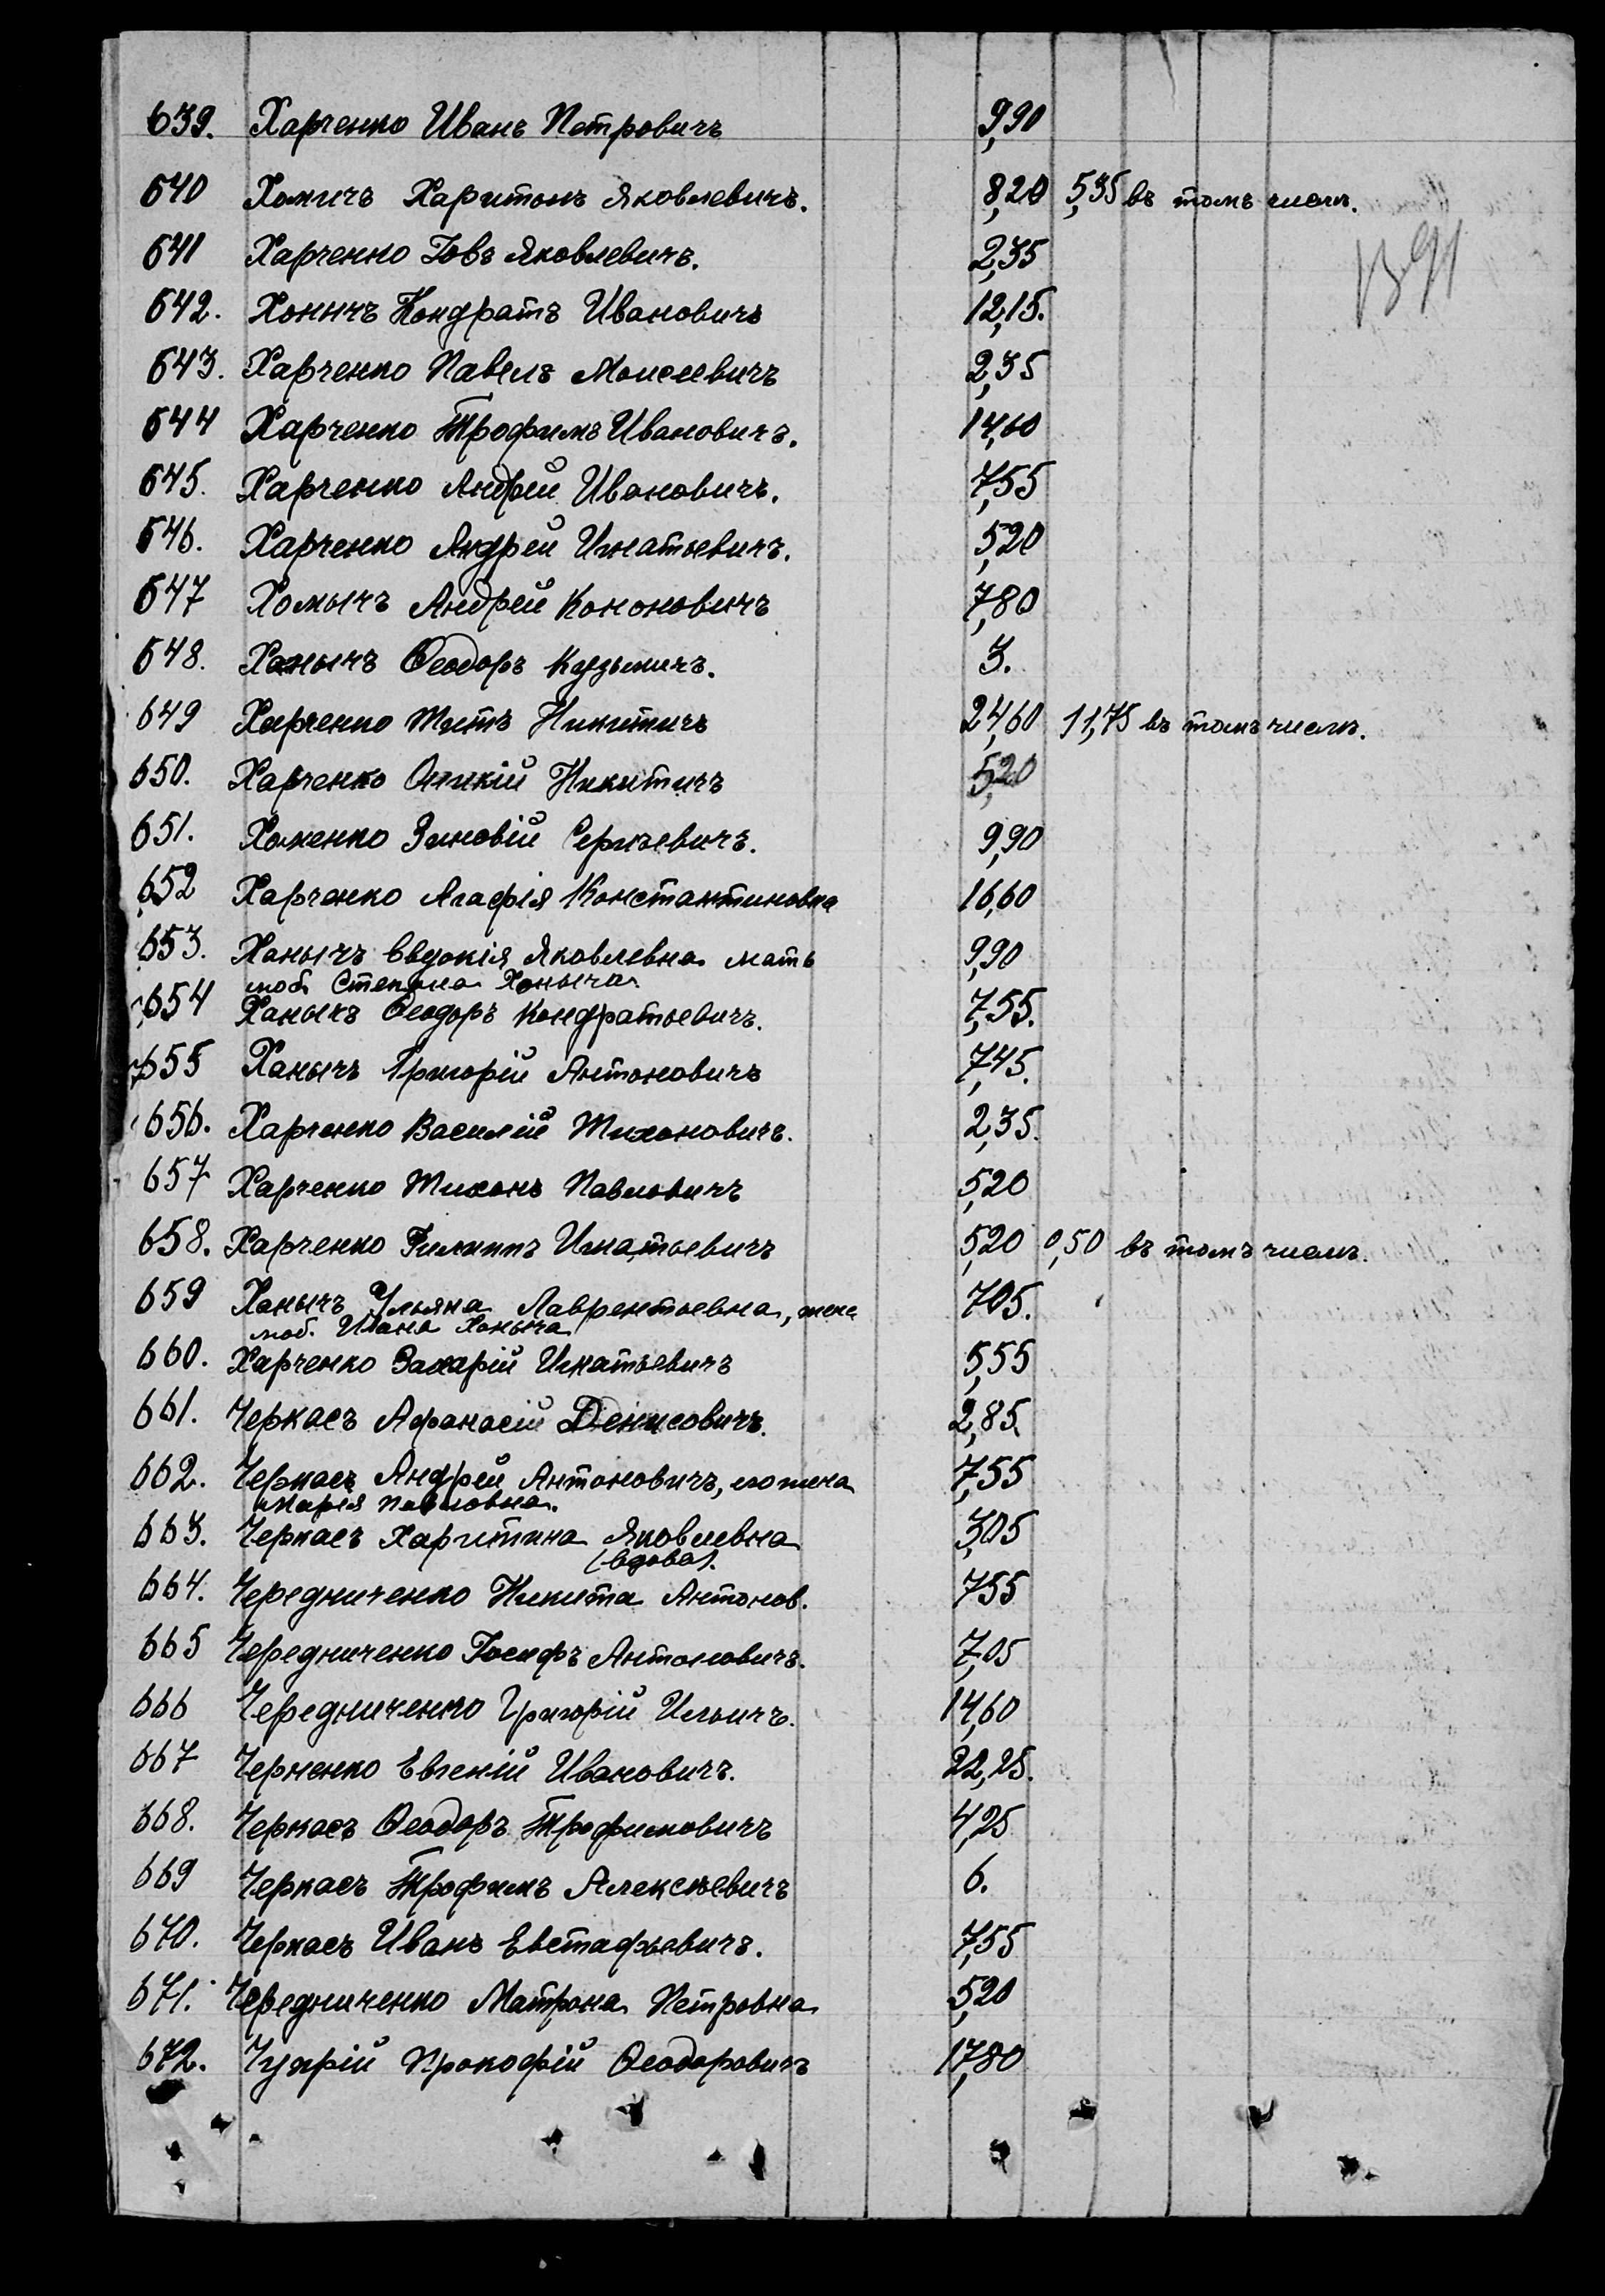 639. Харченко Иванъ Петровичъ 9,90
640 Хомичъ Харитонъ Яковлевичъ. 8,20 5,35 въ томъ числѣ.
641 Харченко Іовъ Яковлевичъ. 2,35
642. Ханычъ Кондратъ Ивановичъ 12,15.
643. Харченко Павелъ Моисеевичъ 2,35
644 Харченко Трофимъ Ивановичъ. 14,60
645. Харченко Андрей Ивановичъ. 7,55
646. Харченко Андрей Игнатьевичъ. 5,20
647 Хомычъ Андрей Кононовичъ 7,80
648. Ханычъ Ѳеодоръ Кузьмичъ. 3.
649 Харченко Титъ Никитичъ 24,60 11,75 въ томъ числѣ.
650. Харченко Никитичъ 5,20
651. Хоменко Зиновій Сергѣевичъ. 9,90
652 Харченко Агафія Константиновна 16,60
653. Ханычъ Евдокія Яковлевна мать 9,90
моб. Степана Ханыча
654 Ханычъ Ѳеодоръ Кондратьевичъ. 7,55.
655 Ханычъ Григорій Антоновичъ 7,45.
656. Харченко Василій Тихоновичъ. 2,35.
657 Харченко Тихонъ Павловичъ 5,20
658. Харченко Филиппъ Игнатьевичъ 5,20 0,50 въ томъ числѣ.
659 Ханычъ Ульяна Лаврентьевна, жена 705.
моб. Ивана Ханыча
660. Харченко Захарій Игнатьевичъ 5,55
661. Черкасъ Афанасій Денисовичъ. 2,85.
662. Черкасъ Андрей Антоновичъ, его жена 7,55
Марія Павловна.
663. Черкасъ Харитина Яковлевна 3,05
(вдова).
664. Чередниченко Никита Антонов. 755
665 Чередниченко Іосифъ Антоновичъ. 7,05
666 Чередниченко Григорій Ильичъ. 14,60
667 Черненко Евгеній Ивановичъ. 22,25.
668. Черкасъ Ѳеодоръ Трофимовичъ 4,25
669 Черкасъ Трофимъ Алексѣевичъ 6.
670. Черкасъ Иванъ Евстафьевичъ. 7,55
671. Чередниченко Матрона Петровна 5,20
672. Чухрій Прокофій Ѳеодоровичъ 17,80